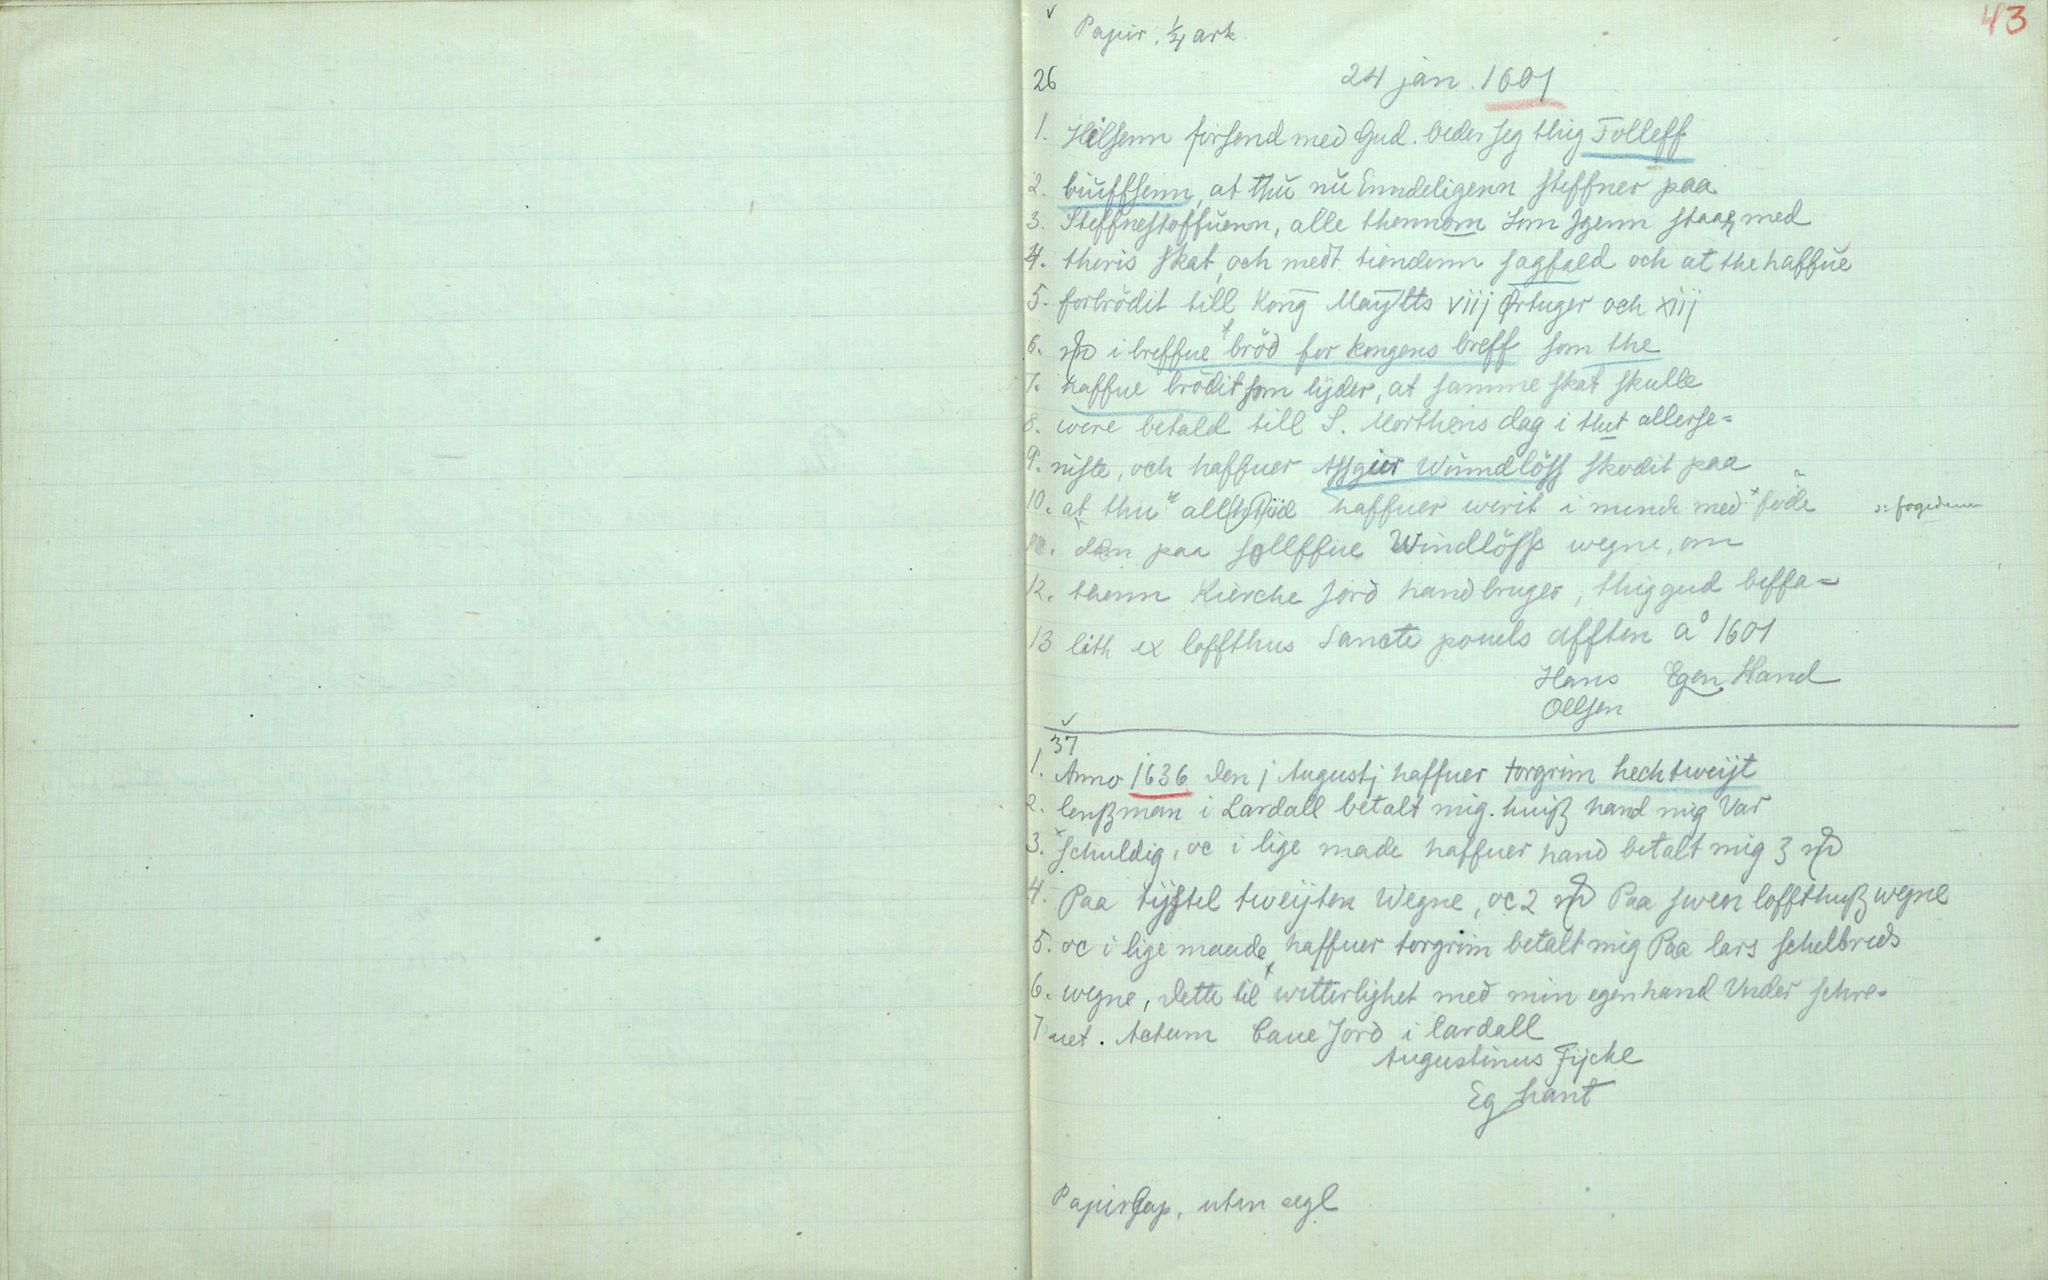 43
Papir. 1/4 ark.
26 24 jan. 1601
1. Hilsenn forsend med Gud. beder Jeg thig Tolleff
2. biuffsenn, at thu nu Enndeligenn steffner paa
3. Steffnestoffuenn, alle thennom som Jgenn staar med
4. theris skat, och medt tiendenn sagfald och at the haffue
5. forbrödit till Kong Maytts viij Ørtuger och xiij
6. i breffue bröd for kongens breff som the
7. haffue brödit som lyder, at samme skat skulle
8. were betald till S. Morthens dag i thet allerse-
9. niste, och haffuer Assgier Wunndlöss skodit paa
10. at thu all haffuer werit i minde med fode ɔ: fogedenn
den paa sollffue Windlöss wegne, om
12. thenn Kierche Jord hand bruger, thig gud beffa-
13 lith ex loffthus Sancte pouels afften a° 1601
Hans Egen Hand
Ollsen
37
1. Anno 1636 den j Augustj haffuer torgrim hechtweijt
2. lenßman i Lardall betalt mig. huiß hand mig Var
3. schuldig, oc i lige made haffuer hand betalt mig 3
4. Paa tijstel tweijten Wegne, oc 2 Paa swen loffthuß wegne
5. oc i lige maade, haffuer torgrim betalt mig Paa lars schelbreds
6. wegne, dette til witterlighet med min egen hand Vnder schre-
7 uet. Actum Caue Jord i lardall
Augustinus Fijche
Eg hant
Papirlap, uten segl